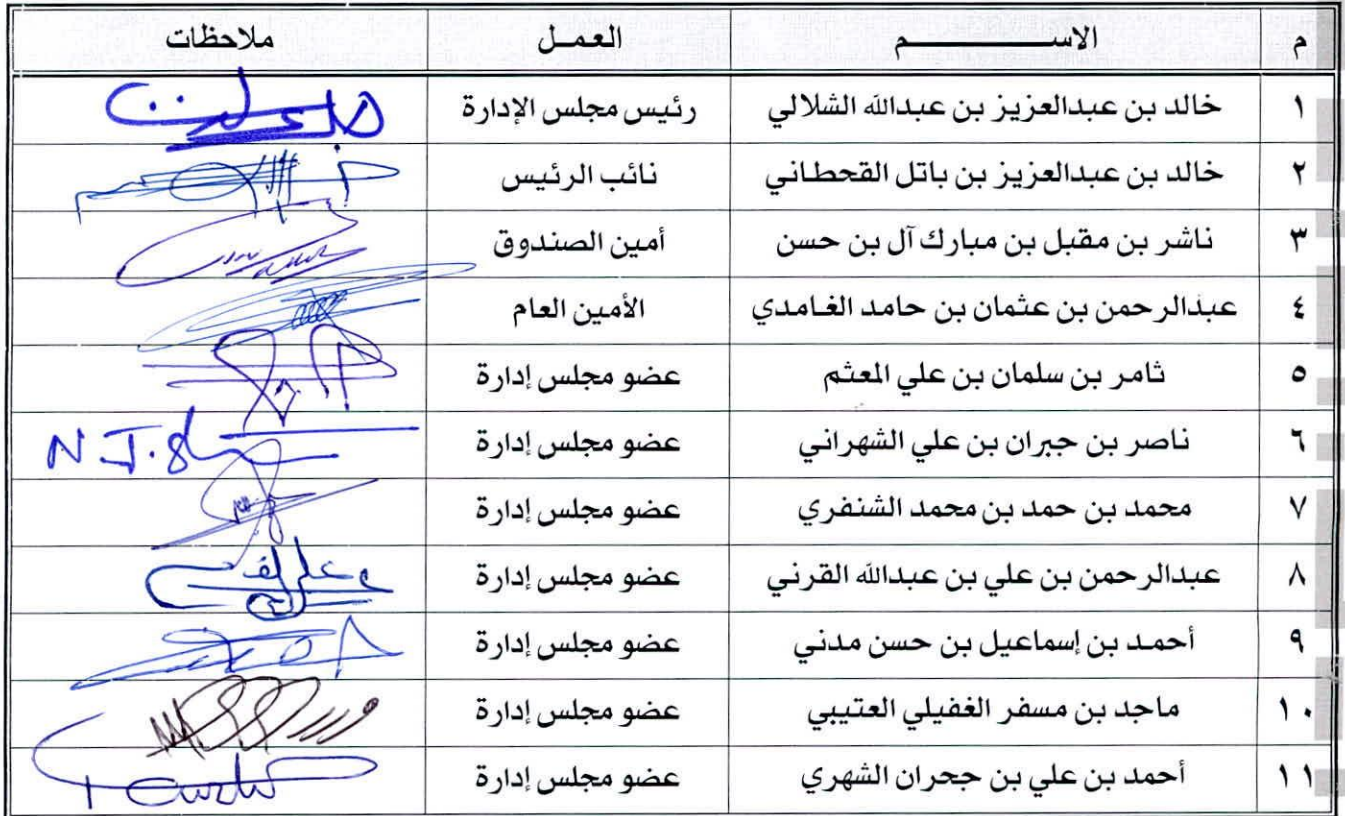 م الاســـــــــم العمـل ملاحظات
١ خالد بن عبدالعزيز بن عبدالله الشلالي رئيس مجلس الإدارة
٢ خالد بن عبدالعزيز بن باتل القحطاني نائب الرئيس
٣ ناشر بن مقبل بن مبارك آل بن حسن أمين الصندوق
٤ عبدالرحمن بن عثمان بن حامد الغامدي الأمين العام
٥ ثامر بن سلمان بن علي المعثم عضو مجلس إدارة
٦ ناصر بن جبران بن علي الشهراني عضو مجلس إدارة
٧ محمد بن حمد بن محمد الشنفري عضو مجلس إدارة
٨ عبدالرحمن بن علي بن عبدالله القرني عضو مجلس إدارة
٩ أحمد بن إسماعيل بن حسن مدني عضو مجلس إدارة
١٠ ماجد بن مسفر الغفيلي العتيبي عضو مجلس إدارة
١١ أحمد بن علي بن جحران الشهري عضو مجلس إدارة